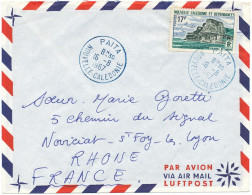 PAITA
8H30
16-8
1967
NOUVELLE-CALEDONIE
NOUVELLE CALEDONIE ET DEPENDANCES
17F
Sœur Marie Goretti
5 chemin du Signal
Noviciat - Ste Foy-les-Lyon
RHONE
FRANCE
PAR AVION
VIA AIR MAIL
LUFTPOST